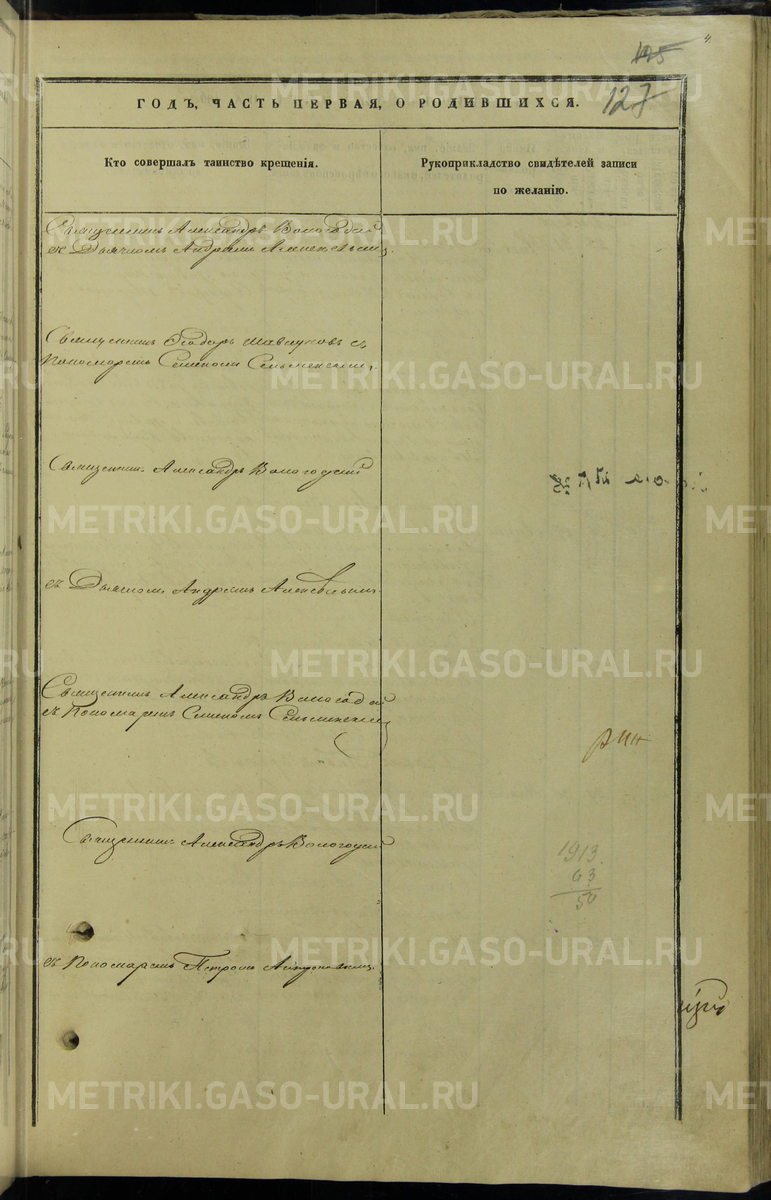 125
127
ГОДЪ, ЧАСТЬ ПЕРВАЯ, О РОДИВШИХСЯ.
Кто совершалъ таинство крещенія.
Рукоприкладство свидѣтелей записи
по желанію.
Священникъ Александръ Вологодскій
съ Дьячкомъ Андреемъ
Священникъ Ѳеодоръ съ
Пономаремъ Семеномъ
Священникъ Александръ Вологодскій
съ Дьячкомъ Андреемъ
Священникъ Александръ Вологодскій
съ Пономаремъ Семеномъ
Священникъ Александръ Вологодскій
1913
63
50
съ Пономаремъ Петромъ
METRIKI.GASO-URAL.RU